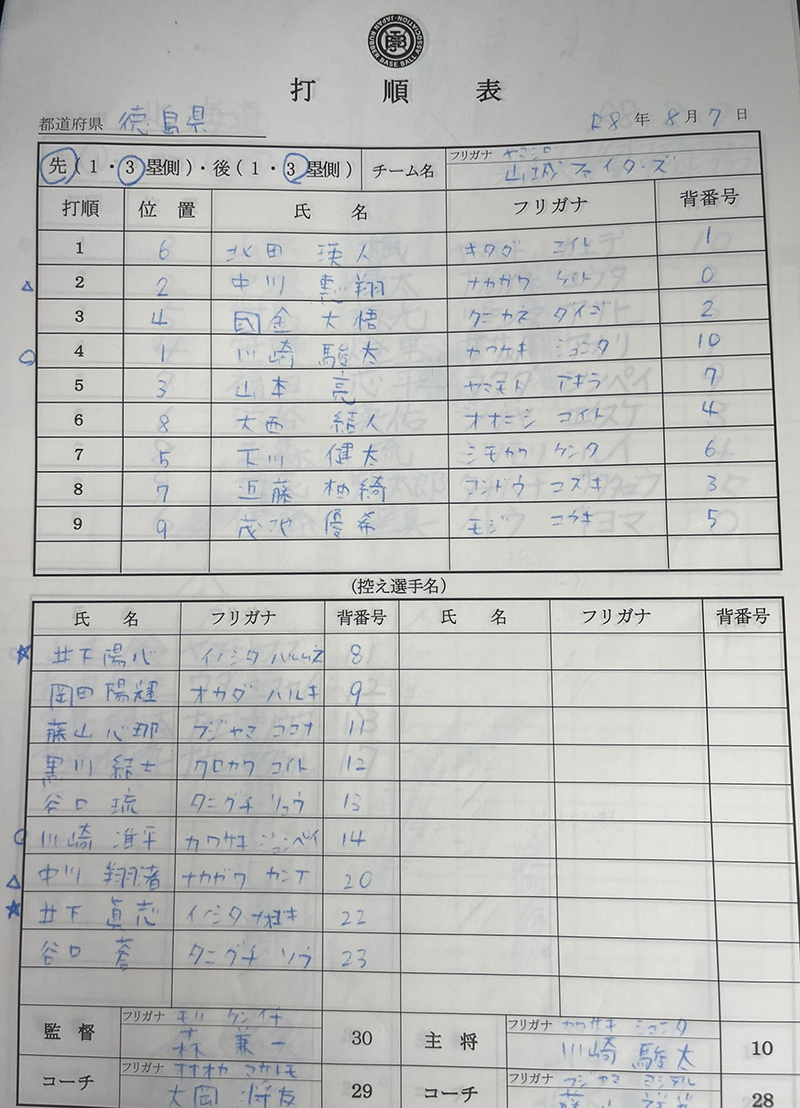 JAPAN RUBBER BASE BALL ASSOCIATION
打順表
都道府県 徳島県 R8年 8月 7日
先(1・3塁側)・後(1・3塁側) チーム名 フリガナ ヤマシロ 山城ファイターズ
打順 位置 氏名 フリガナ 背番号
1 6 北田 瑛人 キタダ エイト 1
2 2 中川 恵翔 ナカガワ ケイト 0
3 4 國金 大悟 クニカネ ダイゴ 2
4 1 川崎 駿太 カワサキ シュンタ 10
5 3 山本 亮 ヤマモト アキラ 7
6 8 大西 結人 オオニシ ユイト 4
7 5 下川 健太 シモカワ ケンタ 6
8 7 近藤 柚綺 コンドウ ユズキ 3
9 9 茂地 優希 モジ ユウキ 5
(控え選手名)
氏名 フリガナ 背番号 氏名 フリガナ 背番号
井下 陽心 イノシタ 8
岡田 陽輝 オカダ ハルキ 9
藤山 心那 フジヤマ ココナ 11
黒川 結士 クロカワ ユイト 12
谷口 琉 タニグチ リュウ 13
川崎 準平 カワサキ ジュンペイ 14
中川 翔渚 ナカガワ カンナ 20
井下 真志 イノシタ 22
谷口 蒼 タニグチ ソウ 23
監督 フリガナ ケンイチ 森 兼一 30 主将 フリガナ カワサキ シュンタ 川崎 駿太 10
コーチ フリガナ オオオカ マサトモ 大岡 将友 29 コーチ フリガナ フジヤマ 28